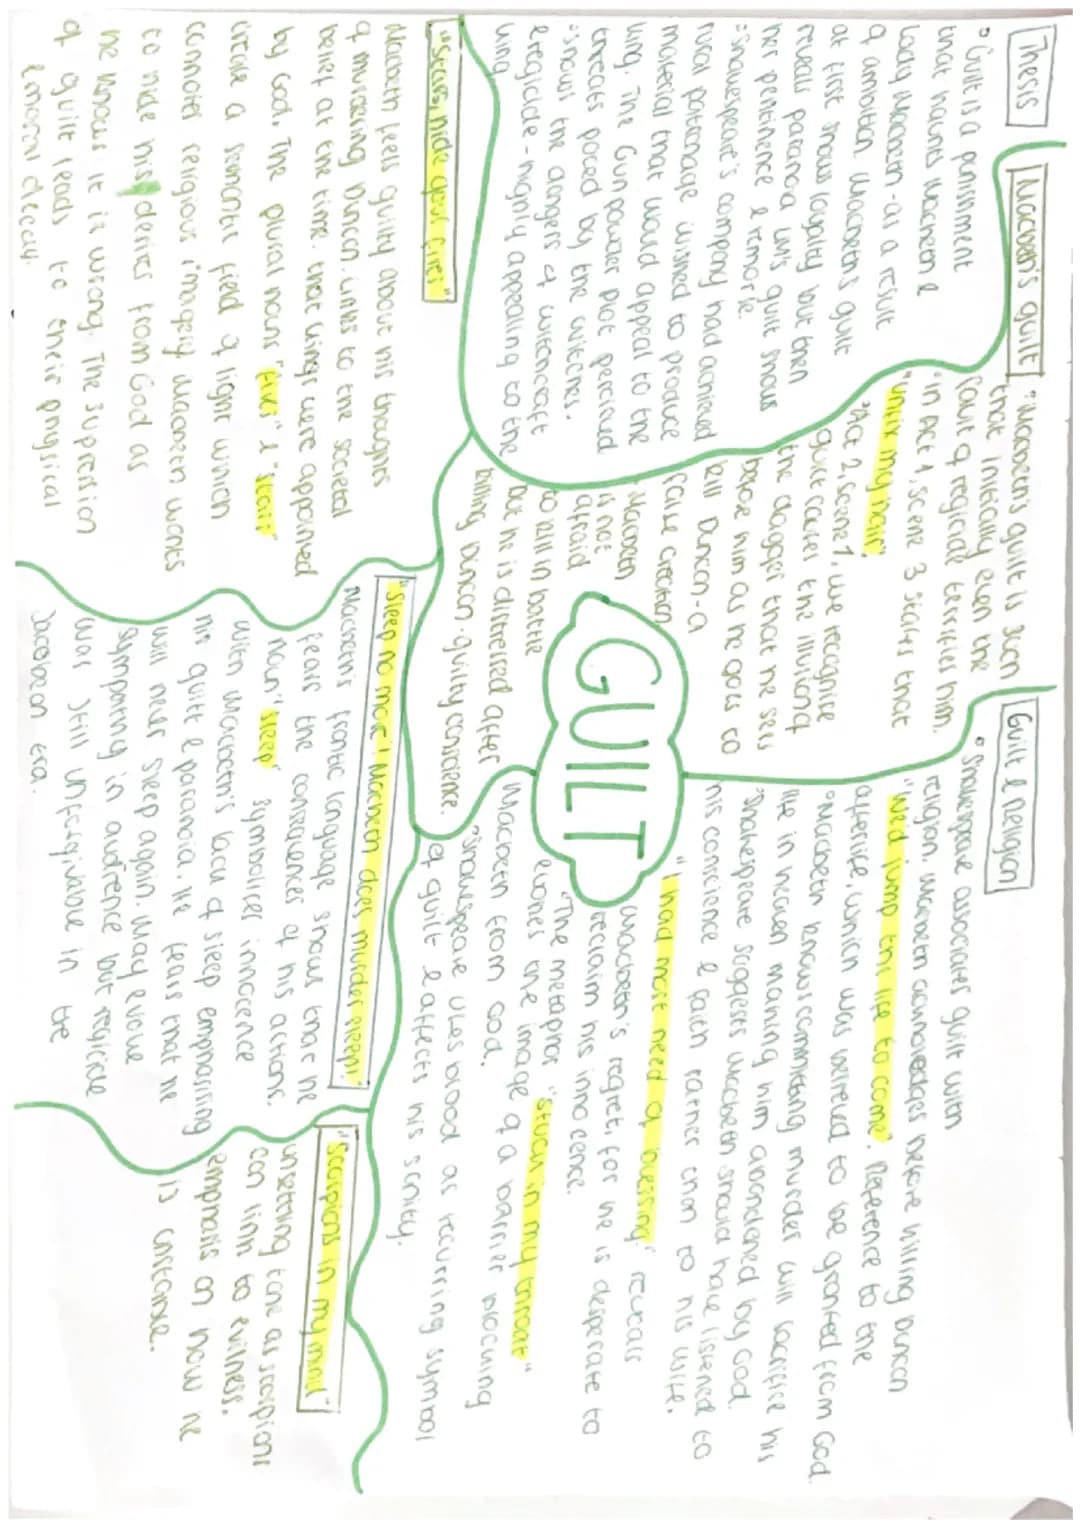 Thesis
▫ Guilt is a punishment
that haunts Macbeth &
Lady Macbeth - as a result
of ambition. Macbeth's guilt
at first shows loyalty but then
reveals paranoia. LM's guilt shows
her pertinence & remorse.
▫ Shakespeare's company had acquired
royal patronage wished to produce
material that would appeal to the
king. The Gunpowder plot perceived
threats poced by the witches.
▫ Shows the dangers of witchcraft
& regicide - highly appealing to the
king
Macbeth's guilt
▫ Macbeth's guilt is such
that initially even the
fault of regicide terrifies him.
▫ in Act 1, scene 3 states that
"unfix my hair"
▫ Act 2, scene 1, we recognise
guilt causes the illusion of
the dagger that he sees
before him as he goes to
kill Duncan - a
false creation
Macbeth
is not
afraid
to kill in battle
but he is distressed after
killing Duncan. guilty concience.
GUILT
Guilt & religion
▫ Shakespeare associates guilt with
religion. Macbeth acknowledges before killing Duncan
"We'd jump the life to come". Reference to the
afterlife, which was believed to be granted from God.
▫ Macbeth knows committing murder will sacrifice his
life in heaven making him abondened by God.
▫ Shakespeare suggests Macbeth should have listened to
his conscience & faith rather than to his wife.
"I had most need of blessing" reveals
Macbeth's regret, for he is desperate to
reclaim his innocence.
▫ The metaphor "stuck in my throat"
evokes the image of a barrier blocking
Macbeth from God.
▫ Shakespeare uses blood as recurring symbol
of guilt & affects his sanity.
"Stars, hide your fires"
Macbeth feels guilty about his thoughts
of murdering Duncan. Links to the societal
belief at the time. that kings were appoined
by God. The plural nouns "fires" & "stars"
create a semantic field of light which
connotes religious imagery. Macbeth wants
to hide his desires from God as
he knows it is wrong. The supression
of guilt leads to their physical
& moral decay.
"Sleep no more! Macbeth does murder sleep!"
Macbeth's frantic language shows that he
fears the consequences of his actions.
Noun "sleep" symbolises innocence
with Macbeth's lack of sleep emphasising
his guilt & paranoia. He fears that he
will never sleep again. May evoke
sympathy in audience but regicide
was still unforgivable in the
Jacobean era.
"Scorpions in my mind"
unsettling tone as scorpions
can link to evilness.
emphasis on how he
is unstable.